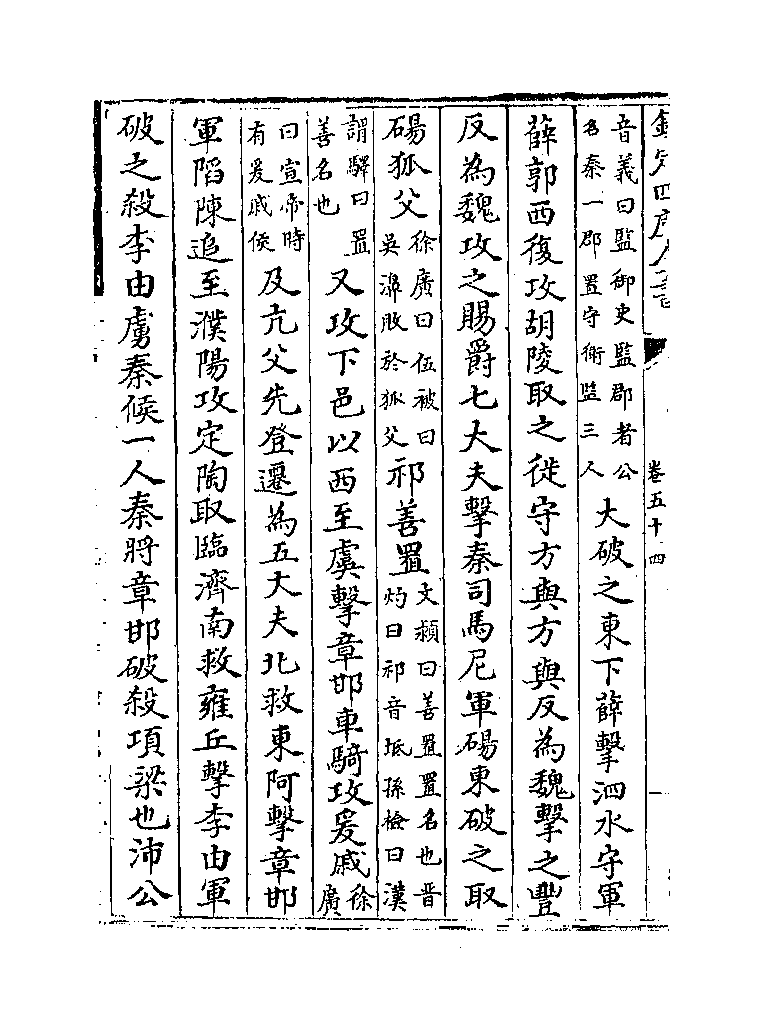 欽定四庫全書 卷五十四
音義曰監御史監郡者公
名秦一郡置守衛監三人
大破之東下薛擊泗水守軍
薛郭西復攻胡陵取之徙守方與方與反為魏擊之豐
反為魏攻之賜爵七大夫擊秦司馬尼軍碭東破之取
碭狐父
徐廣曰伍被曰
吳濞敗於狐父
祁善置
文穎曰善置置名也晉
灼曰祁音坻孫檢曰漢
謂驛曰置
善名也
又攻下邑以西至虞擊章邯車騎攻爰戚
徐
廣
曰宣帝時
有爰戚侯
及亢父先登遷為五大夫北救東阿擊章邯
軍陷陳追至濮陽攻定陶取臨濟南救雍丘擊李由軍
破之殺李由虜秦候一人秦將章邯破殺項梁也沛公